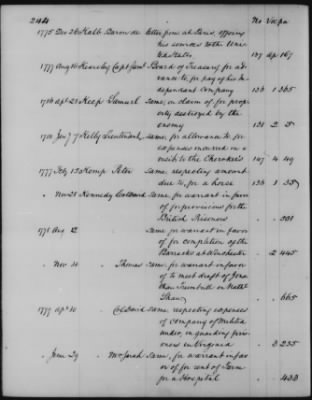 244
No Vol pa
1775 Dec 26 Kalb Baron de letter from at Paris, offering
his services to the Uni-
ted States 107 ap 167
1777 Aug 16 Kearsley Capt Saml Board of Treasury for ad-
vance to, for pay of his In-
dependent Company 136 1 365
1786 apl 25 Keep Samuel Same, on claim of for prop-
erty destroyed by the
enemy 138 2 5
Jany 7 Kelly Lieutenant Same, for allowance to for
expenses incurred on a
visit to the Cherokees 147 4 49
1777 Feby 15 Kemp Peter Same respecting amount
due to, for a house 136 1 35
" Nov 25 Kennedy Same for warrant in favor
of for provisions for the
British Prisoners " " 501
1778 Aug 12 Same for warrant in favor
of for completion of the
Barracks at Winchester " 2 445
" Nov 4 " Thomas Same for warrant in favor
of to meet draft of Jona-
than Trumbull on Nathl
Shaw " " 665
1779 ap 10 " Col David Same, respecting expenses
of company of Militia
under, in guarding pris-
oners in Virginia " 3 235
" June 29 " Mrs Sarah Same, for warrant in fav-
or of for rent of Farm
for a Hospital " " 403